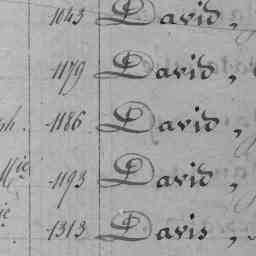 1043 David,
1179 David,
ph. 1186 David,
Mie 1193 David,
ie 1313 Davis,